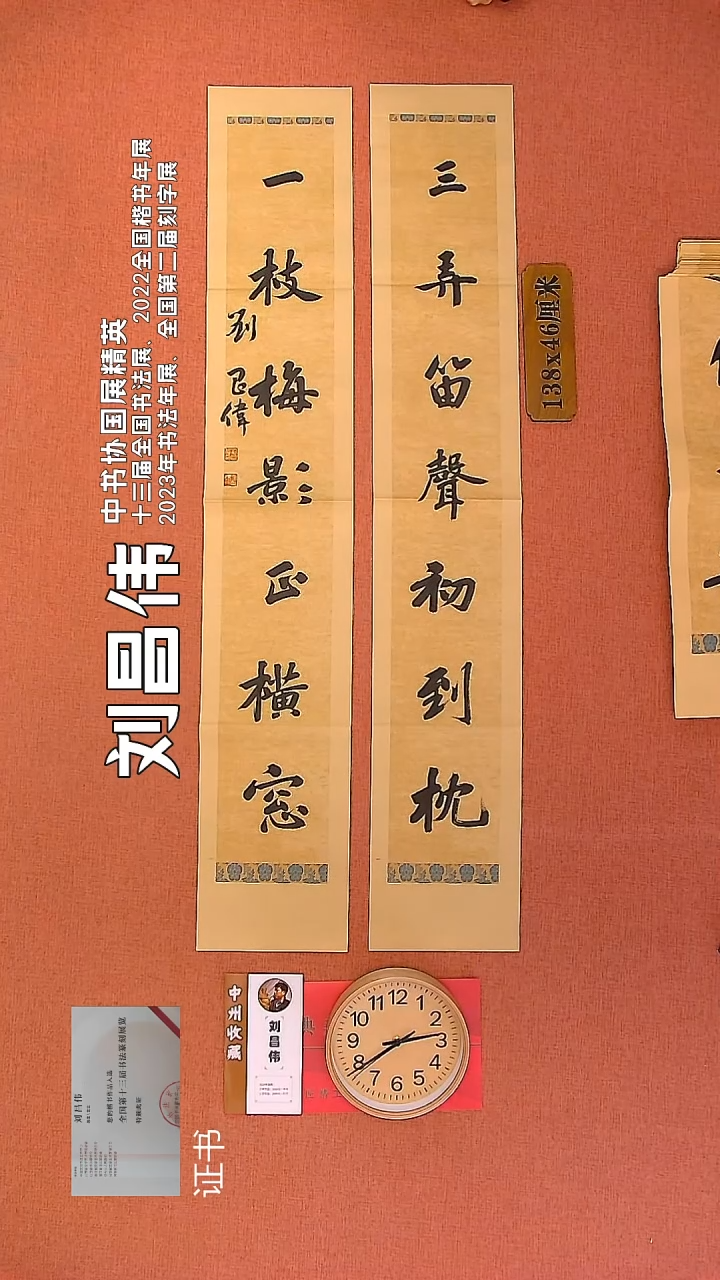 三弄笛聲初到枕
一枝梅影正橫窓
劉昌偉
138x46厘米
中书协国展精英
十三届全国书法展、2022全国楷书年展
2023年书法年展、全国第二届刻字展
刘昌伟
刘昌伟
12
1
2
3
4
5
6
7
8
9
10
11
刘昌伟
您的楷书作品入选
全国第十三届书法篆刻展览
特颁此证
证书